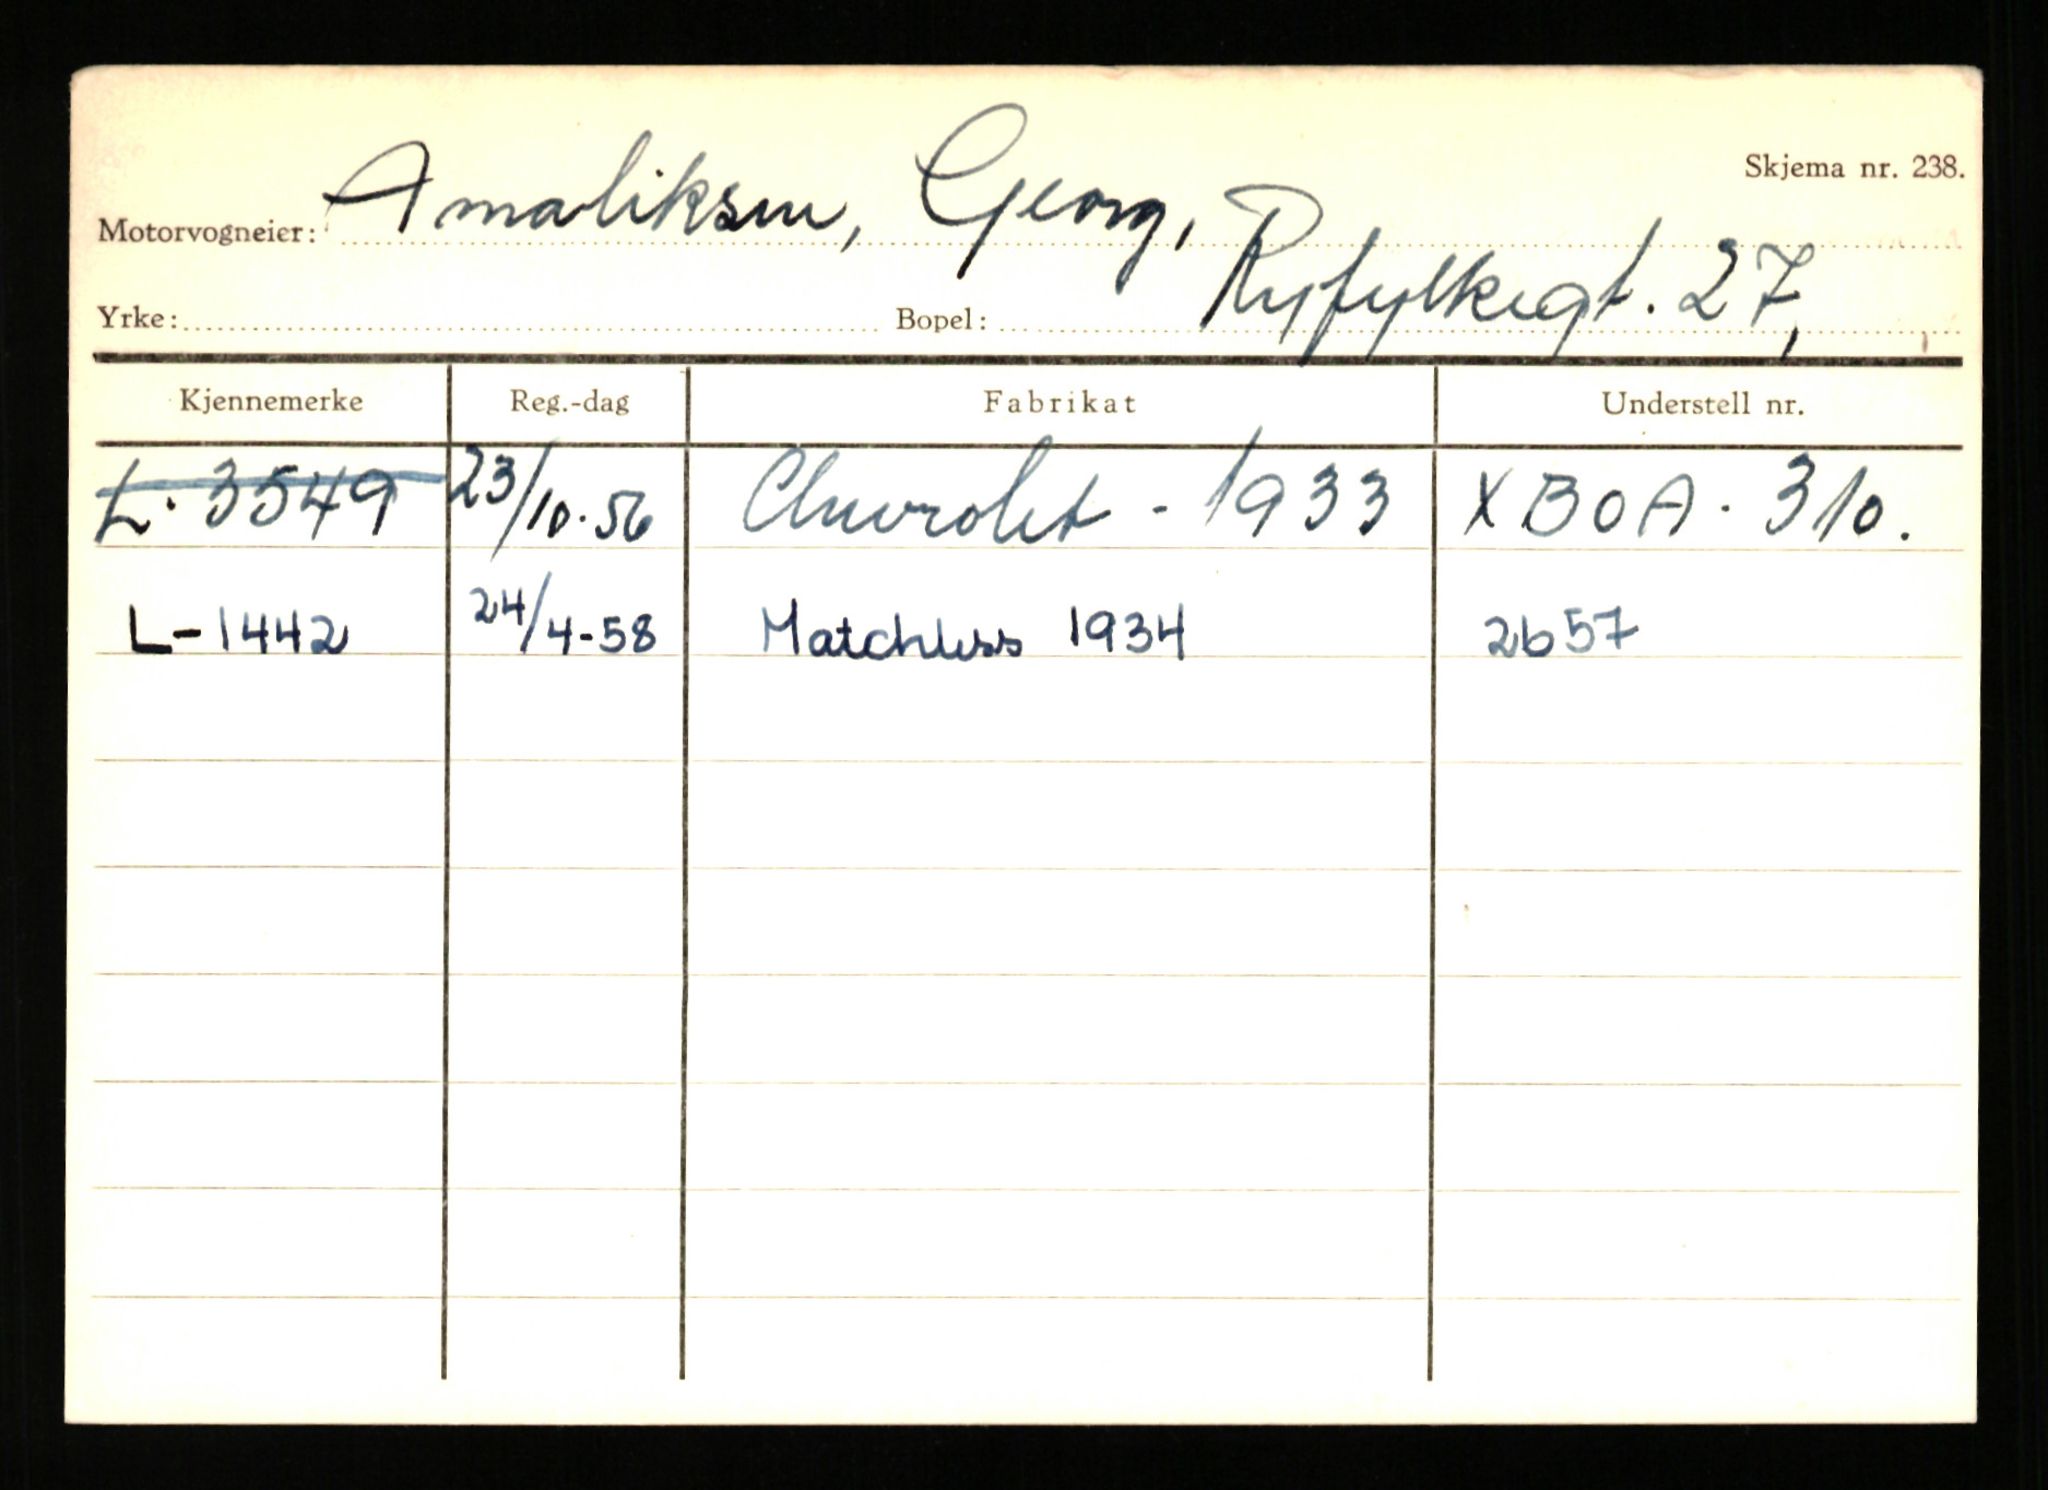 Skjema nr. 238.
Motorvogneier: Amaliksen, Georg,
Yrke: Bopel: Ryfylkegt. 27,
Kjennemerke Reg.-dag Fabrikat Understell nr.
L. 3549 23/10.56 Chevrolet - 1933 XBOA. 310.
L-1442 24/4-58 Matchless 1934 2657